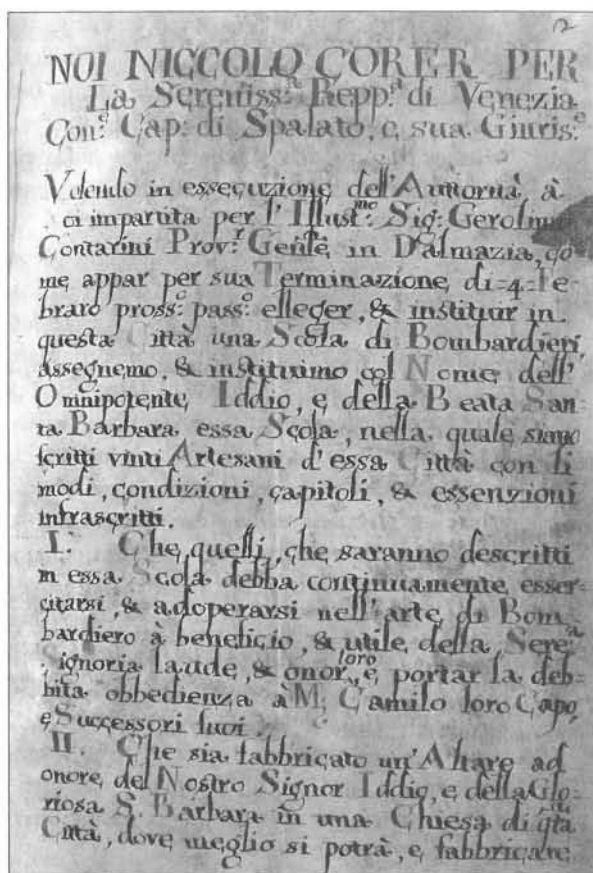 12
NOI NICCOLO CORER PER
La Sereniss:ª Repp:ª di Venezia
Con:ᵉ Cap: di Spalato, e sua Giuris:ᵉ
Volendo in essecuzione dell'Auttorità à
oi impartita per l'Illust:ᵐᵒ Sig: Gerolmo
Contarini Prov:ʳ Genle in Dalmazia, co
me appar per sua Terminazione di=4=Fe-
braro pross:ᵒ pass:ᵒ elleger, & instituir in
questa Città una Scola di Bombardieri,
assegnemo, & instituimo col Nome dell'
Omnipotente Iddio, e della Beata San
ta Barbara essa Scola, nella quale siano
scritti vinti Artesani d'essa Città con li
modi, condizioni, capitoli, & essenzioni
infrascritti.
I. Che quelli, che saranno descritti
in essa Scola debba continuamente esser=
citarsi, & adoperarsi nell'arte di Bom=
bardiero à beneficio, & utile della Sere:ª
Signoria laude, & onor loro, e portar la deb=
bita obbedienza à M: Camilo loro Capo,
e Successori suoi.
II. Che sia fabbricato un'Altare ad
onore del Nostro Signor Iddio, e della Glo=
riosa S. Barbara in una Chiesa di qta
Città, dove meglio si potrà, e fabbricare